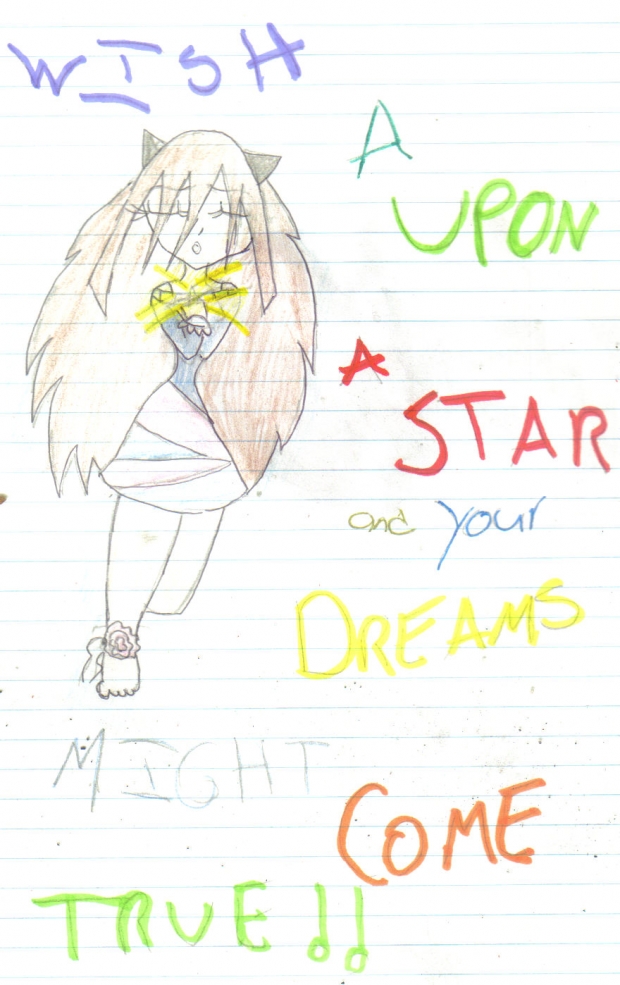 WISH
A
UPON
A
STAR
and your
DREAMS
MIGHT
COME
TRUE!!